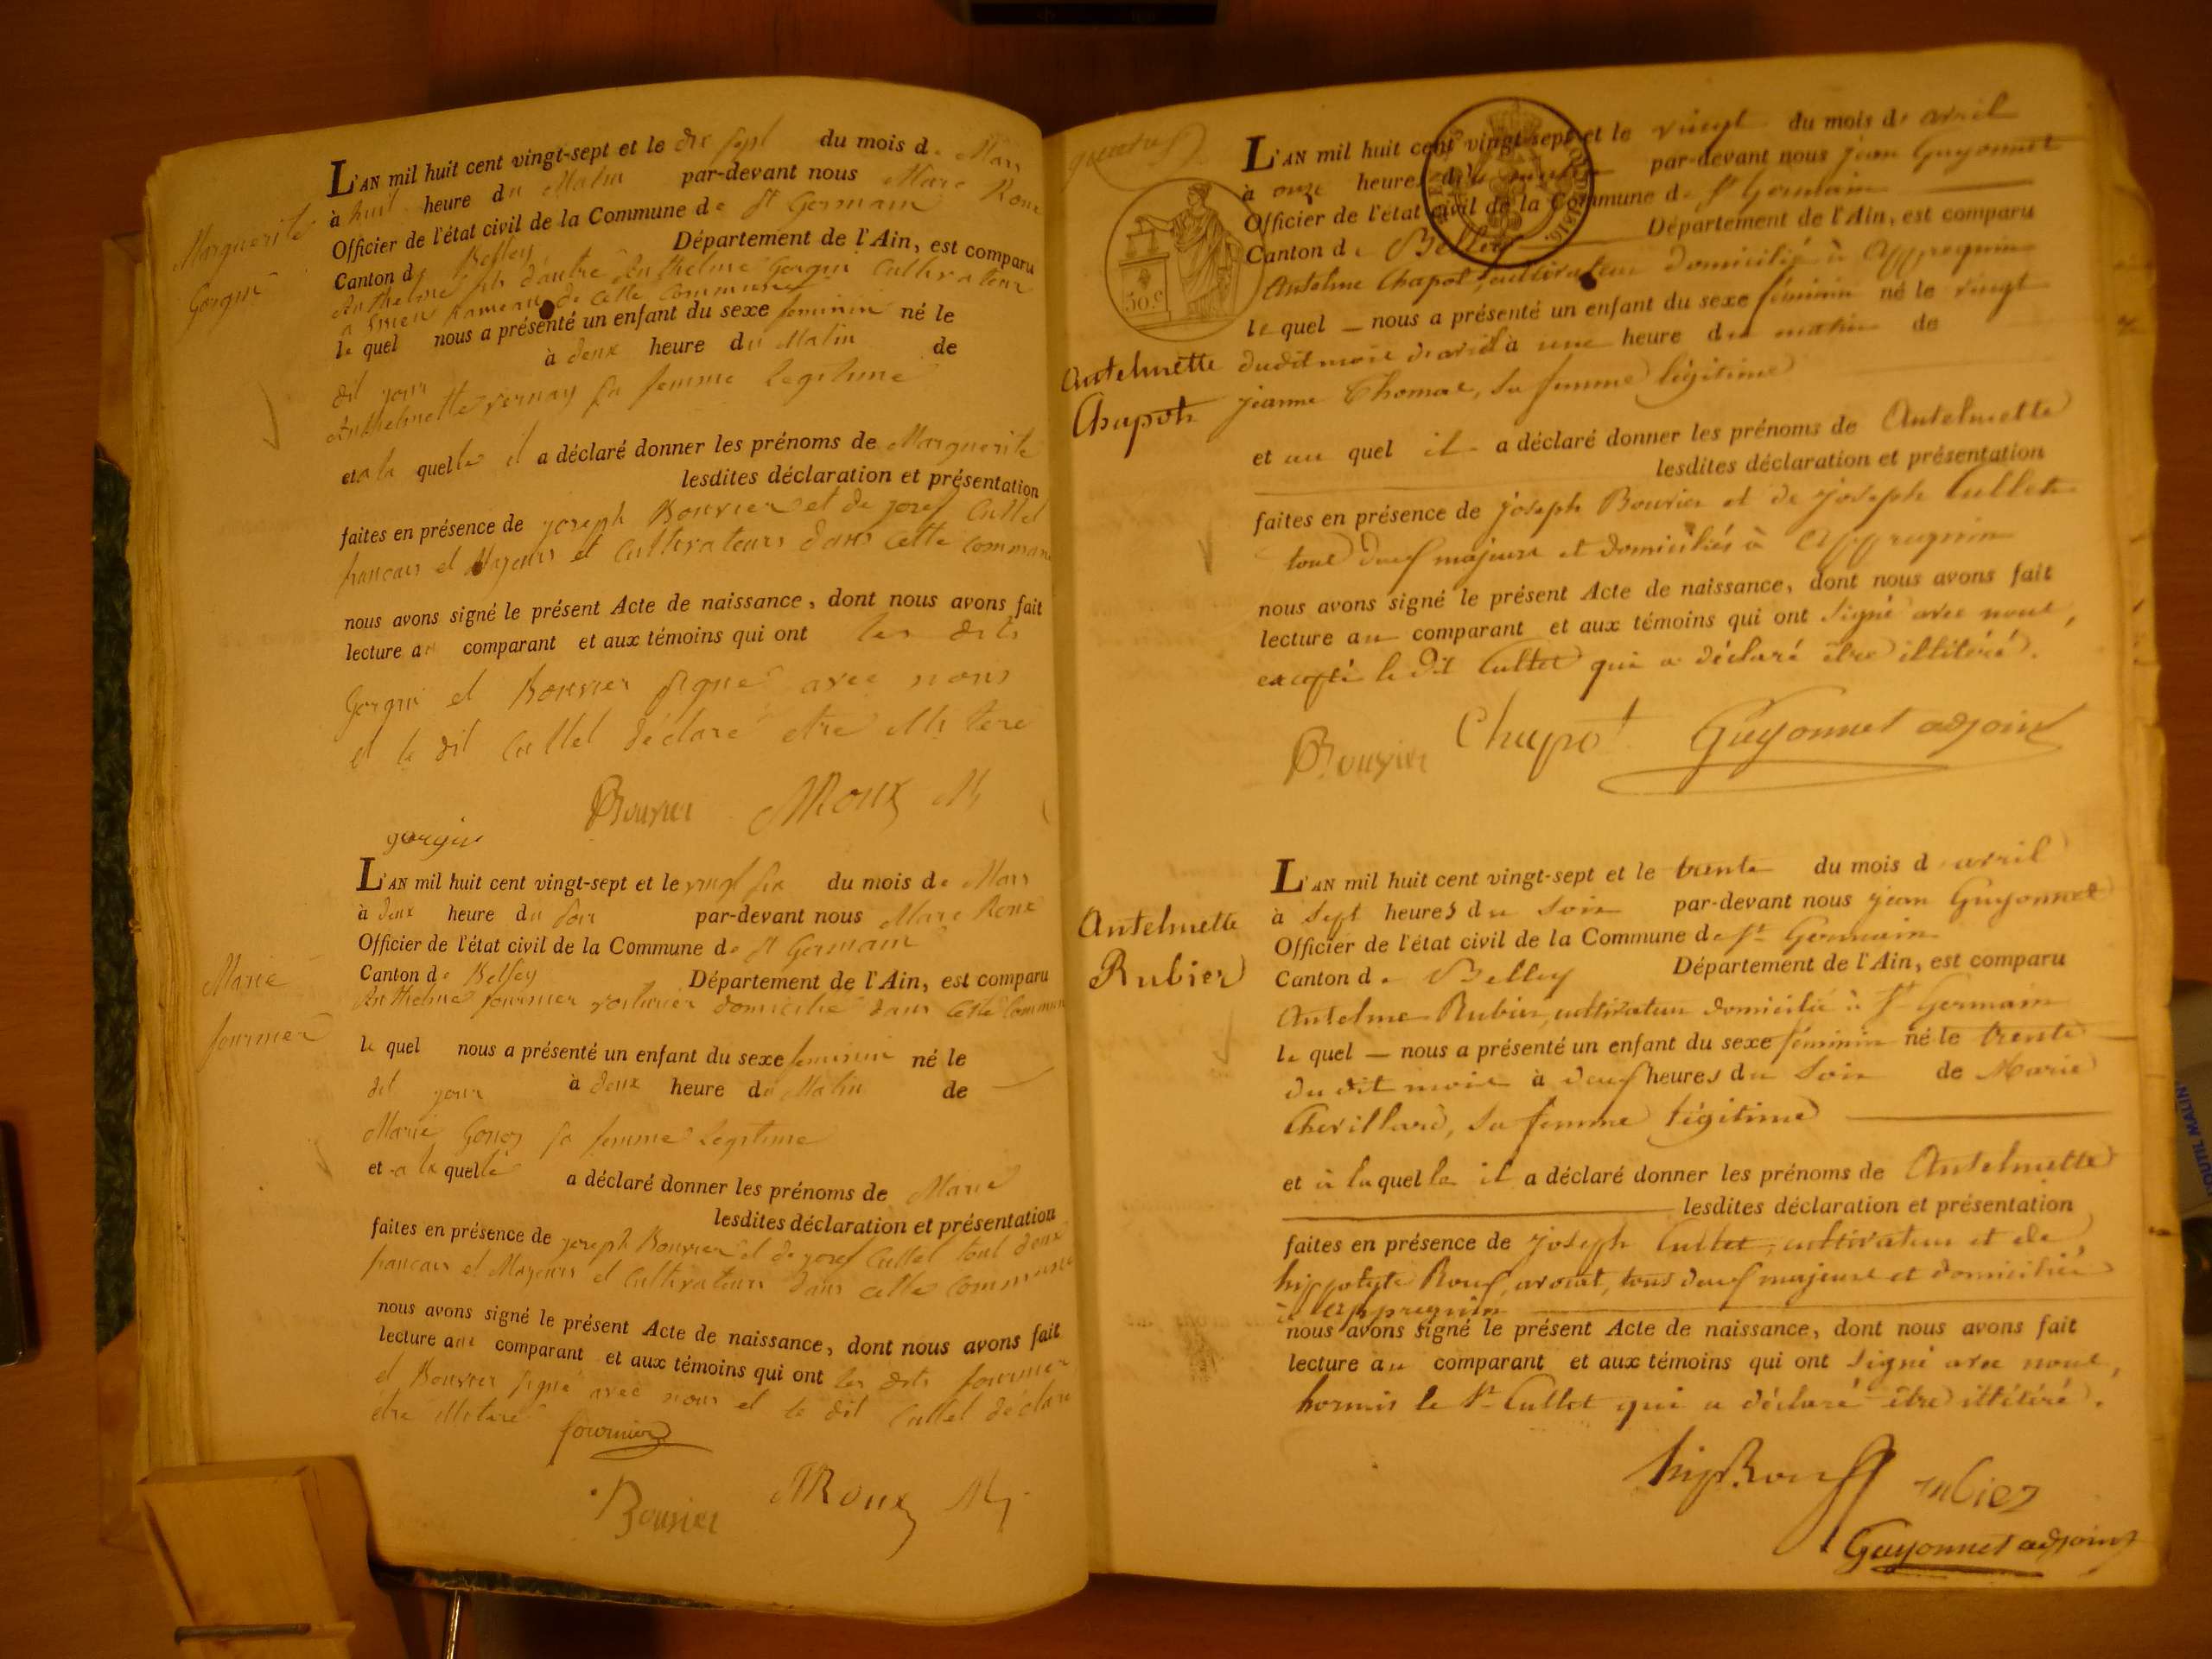 Marguerite
Gorgui
L'AN mil huit cent vingt-sept et le dix sept du mois de Mars
à huit heure du Matin par-devant nous Marc Roux
Officier de l'état civil de la Commune de St Germain
Canton de Belley Département de l'Ain, est comparu
Anthelme fils d'autre Anthelme Gorgui Cultivateur
a hameau de cette Commune
le quel nous a présenté un enfant du sexe feminin né le
dit jour à deux heure du Matin de
Anthelmette vernay sa femme legitime
et a la quelle il a déclaré donner les prénoms de Marguerite
lesdites déclaration et présentation
faites en présence de joseph Bouvier et de josef Cullet
francais et Majeurs et Cultivateurs dans cette commune
nous avons signé le présent Acte de naissance, dont nous avons fait
lecture au comparant et aux témoins qui ont les dits
Gorgui et Bouvier signé avec nous
et le dit Cullet déclaré etre illitere
Bouvier MRoux M
gorgui
Marie
fournier
L'AN mil huit cent vingt-sept et le vingt six du mois de Mars
à deux heure du soir par-devant nous Marc Roux
Officier de l'état civil de la Commune de St Germain
Canton de Belley Département de l'Ain, est comparu
Anthelme fournier voiturier domicilié dans cette Commune
le quel nous a présenté un enfant du sexe feminin né le
dit jour à deux heure du Matin de
Marie Gonos sa femme legitime
et a la quelle a déclaré donner les prénoms de Marie
lesdites déclaration et présentation
faites en présence de joseph Bouvier et de josef Cullet tout deux
francais et Majeurs et Cultivateurs dans cette commune
nous avons signé le présent Acte de naissance, dont nous avons fait
lecture aux comparant et aux témoins qui ont les dits fournier
et Bouvier signé avec nous et le dit Cullet déclaré
etre illitere
fournier
Bouvier MRoux M
50.c
Antelmette
Chapot
L'AN mil huit cent vingt-sept et le vingt du mois de avril
à onze heures du par-devant nous jean Guyonnet
Officier de l'état civil de la Commune de St Germain
Canton de Belley Département de l'Ain, est comparu
Antelme Chapot, cultivateur domicilié à Appregnin
le quel nous a présenté un enfant du sexe féminin né le vingt
dudit mois d'avril à une heure du matin de
jeanne Thomas, sa femme légitime
et au quel il a déclaré donner les prénoms de Antelmette
lesdites déclaration et présentation
faites en présence de joseph Bouvier et de joseph Cullet
tous deux majeurs et domiciliés à Appregnin
nous avons signé le présent Acte de naissance, dont nous avons fait
lecture au comparant et aux témoins qui ont signé avec nous,
excepté le dit Cullet qui a déclaré être illitéré.
Bouvier Chapot Guyonnet adjoint
Antelmette
Rubier
L'AN mil huit cent vingt-sept et le trente du mois d avril
à sept heures du soir par-devant nous jean Guyonnet
Officier de l'état civil de la Commune de St Germain
Canton de Belley Département de l'Ain, est comparu
Antelme Rubier, cultivateur domicilié à St Germain
le quel nous a présenté un enfant du sexe féminin né le trente
du dit mois à deux heures du soir de Marie
Chevillard, sa femme légitime
et à laquelle il a déclaré donner les prénoms de Antelmette
lesdites déclaration et présentation
faites en présence de joseph Cullet, cultivateur et de
hippolyte Roux, avocat, tous deux majeurs et domiciliés
à Appregnin
nous avons signé le présent Acte de naissance, dont nous avons fait
lecture au comparant et aux témoins qui ont signé avec nous,
hormis le Sr Cullet qui a déclaré être illitéré.
hip Roux rubier
Guyonnet adjoint